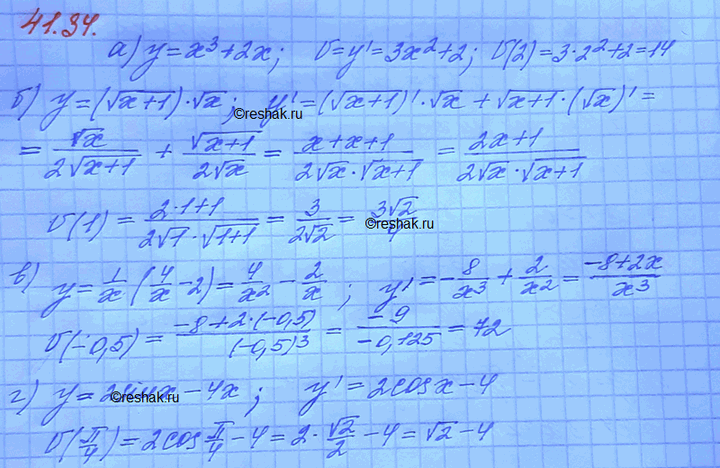 41.34.
а) y = x³ + 2x; v = y' = 3x² + 2; v(2) = 3·2² + 2 = 14
б) y = (√x+1)·√x; y' = (√x+1)'·√x + √x+1·(√x)' =
©reshak.ru
= √x / 2√x+1 + √x+1 / 2√x = x+x+1 / 2√x·√x+1 = 2x+1 / 2√x·√x+1
v(1) = 2·1+1 / 2√1·√1+1 = 3 / 2√2 = 3√2 / 4
©reshak.ru
в) y = 1/x (4/x − 2) = 4/x² − 2/x; y' = −8/x³ + 2/x² = −8+2x / x³
v(−0,5) = −8+2·(−0,5) / (−0,5)³ = −9 / −0,125 = 72
г) y = 2sinx − 4x; y' = 2cosx − 4
©reshak.ru
v(π/4) = 2cos π/4 − 4 = 2·√2/2 − 4 = √2 − 4